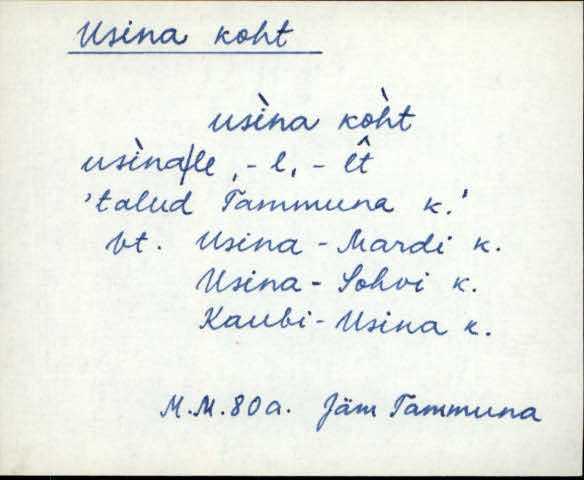 Usina koht
usìna kòht
usìna/le, -l, -l̂t
'talud Tammuna k.'
vt. Usina-Mardi k.
Usina-Sohvi k.
Kaubi-Usina k.
M.M. 80a. Jäm Tammuna